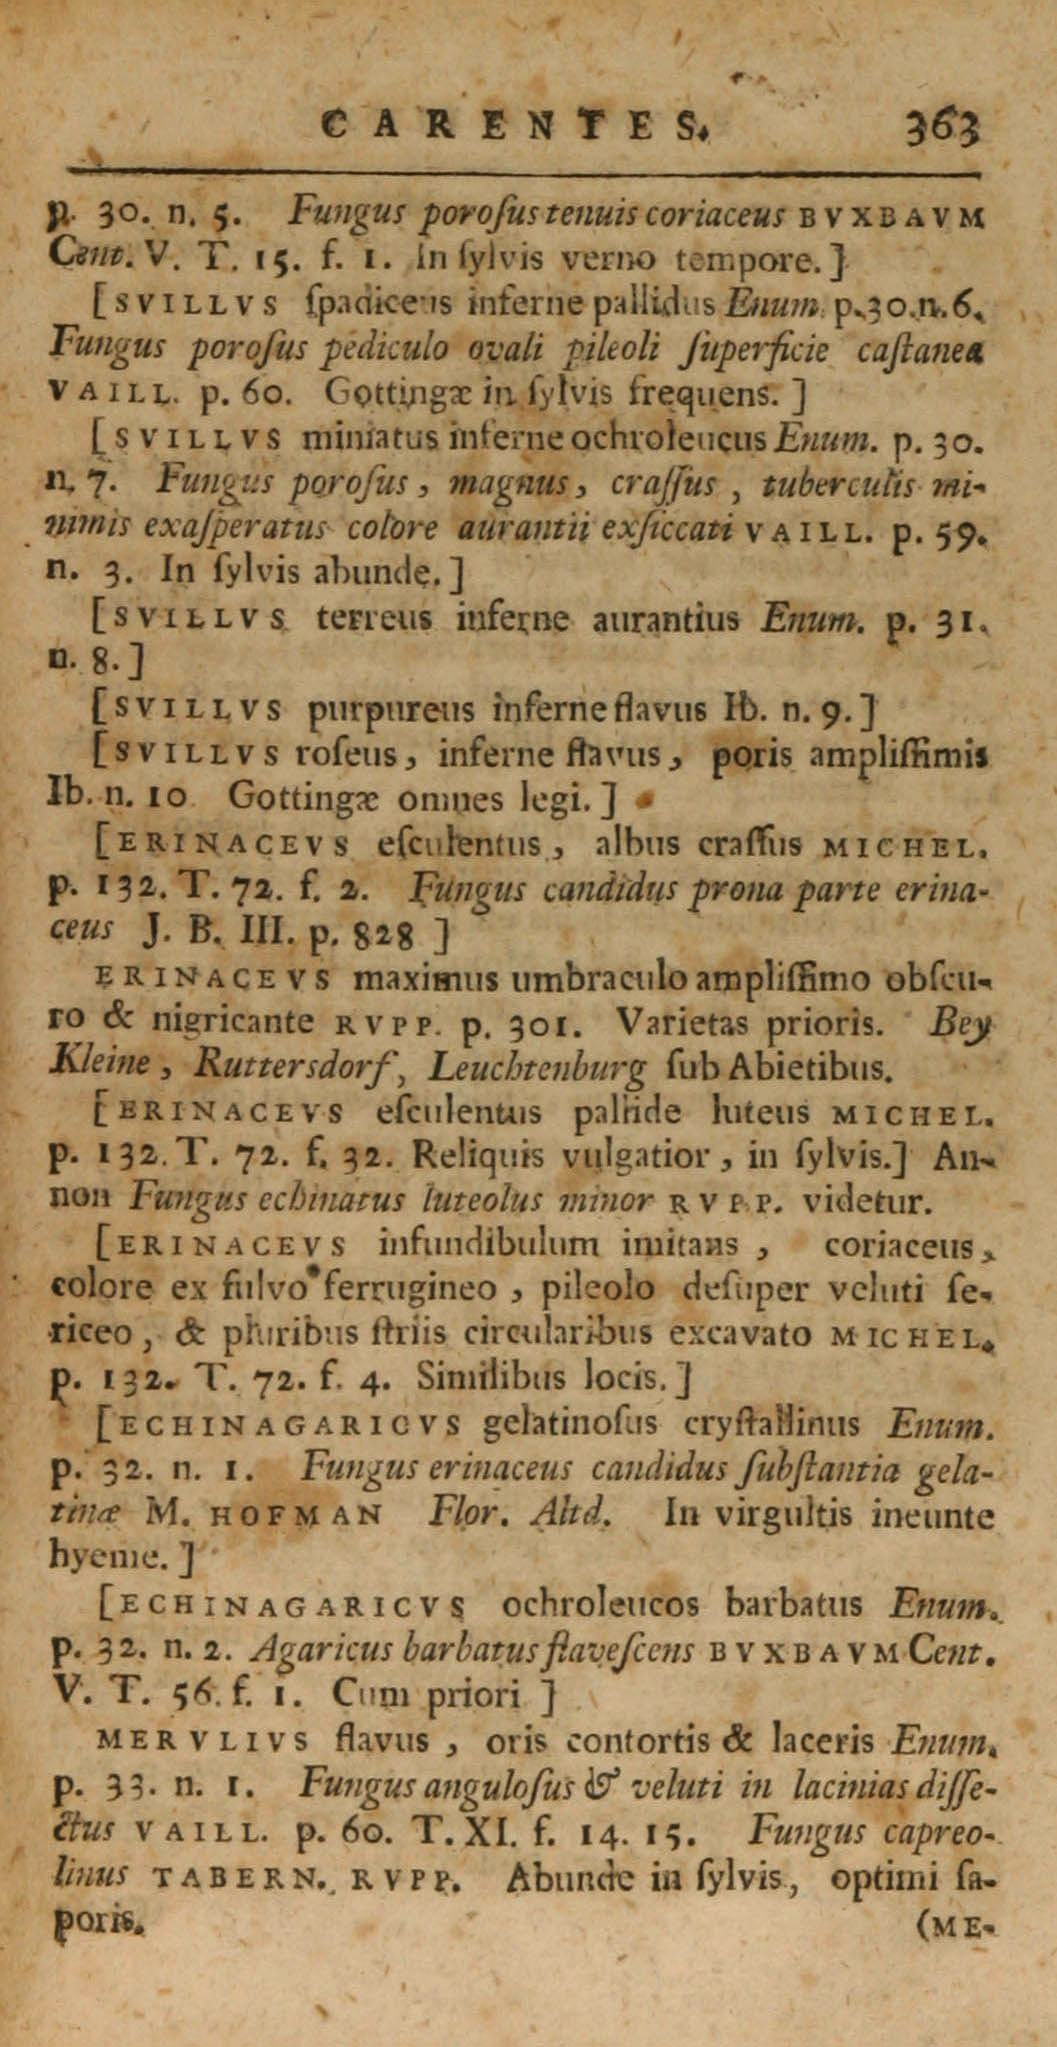 CARENTES. 363
p. 30. n. 5. Fungus poroſus tenuis coriaceus BVXBAVM
Cent. V. T. 15. f. 1. In ſylvis verno tempore.]
[SVILLVS ſpadiceus inferne pallidus Enum. p. 30. n. 6.
Fungus poroſus pediculo ovali pileoli ſuperficie caſtanea
VAILL. p. 60. Gottingæ in ſylvis frequens. ]
[SVILLVS miniatus inferne ochroleucus Enum. p. 30.
n. 7. Fungus poroſus, magnus, craſſus, tuberculis mi-
nimis exaſperatus colore aurantii exſiccati VAILL. p. 59.
n. 3. In ſylvis abunde.]
[SVILLVS terreus inferne aurantius Enum. p. 31.
n. 8.]
[SVILLVS purpureus inferne flavus Ib. n. 9.]
[SVILLVS roſeus, inferne flavus, poris ampliſſimis
Ib. n. 10 Gottingæ omnes legi.]
[ERINACEVS eſculentus, albus craſſus MICHEL.
p. 132. T. 72. f. 2. Fungus candidus prona parte erina-
ceus J. B. III. p. 828 ]
ERINACEVS maximus umbraculo ampliſſimo obſcu-
ro & nigricante RVPP. p. 301. Varietas prioris. Bey
Kleine, Ruttersdorf, Leuchtenburg ſub Abietibus.
[ERINACEVS eſculentus pallide luteus MICHEL.
p. 132. T. 72. f. 32. Reliquis vulgatior, in ſylvis.] An-
non Fungus echinatus luteolus minor RVPP. videtur.
[ERINACEVS infundibulum imitans, coriaceus,
colore ex fulvo ferrugineo, pileolo deſuper veluti ſe-
riceo, & pluribus ſtriis circularibus excavato MICHEL.
p. 132. T. 72. f. 4. Similibus locis.]
[ECHINAGARICVS gelatinoſus cryſtallinus Enum.
p. 32. n. 1. Fungus erinaceus candidus ſubſtantia gela-
tinæ M. HOFMAN Flor. Altd. In virgultis ineunte
hyeme.]
[ECHINAGARICVS ochroleucos barbatus Enum.
p. 32. n. 2. Agaricus barbatus flaveſcens BVXBAVM Cent.
V. T. 56. f. 1. Cum priori ]
MERVLIVS flavus, oris contortis & laceris Enum.
p. 33. n. 1. Fungus anguloſus & veluti in lacinias diſſe-
ctus VAILL. p. 60. T. XI. f. 14. 15. Fungus capreo-
linus TABERN. RVPP. Abunde in ſylvis, optimi ſa-
poris. (ME-